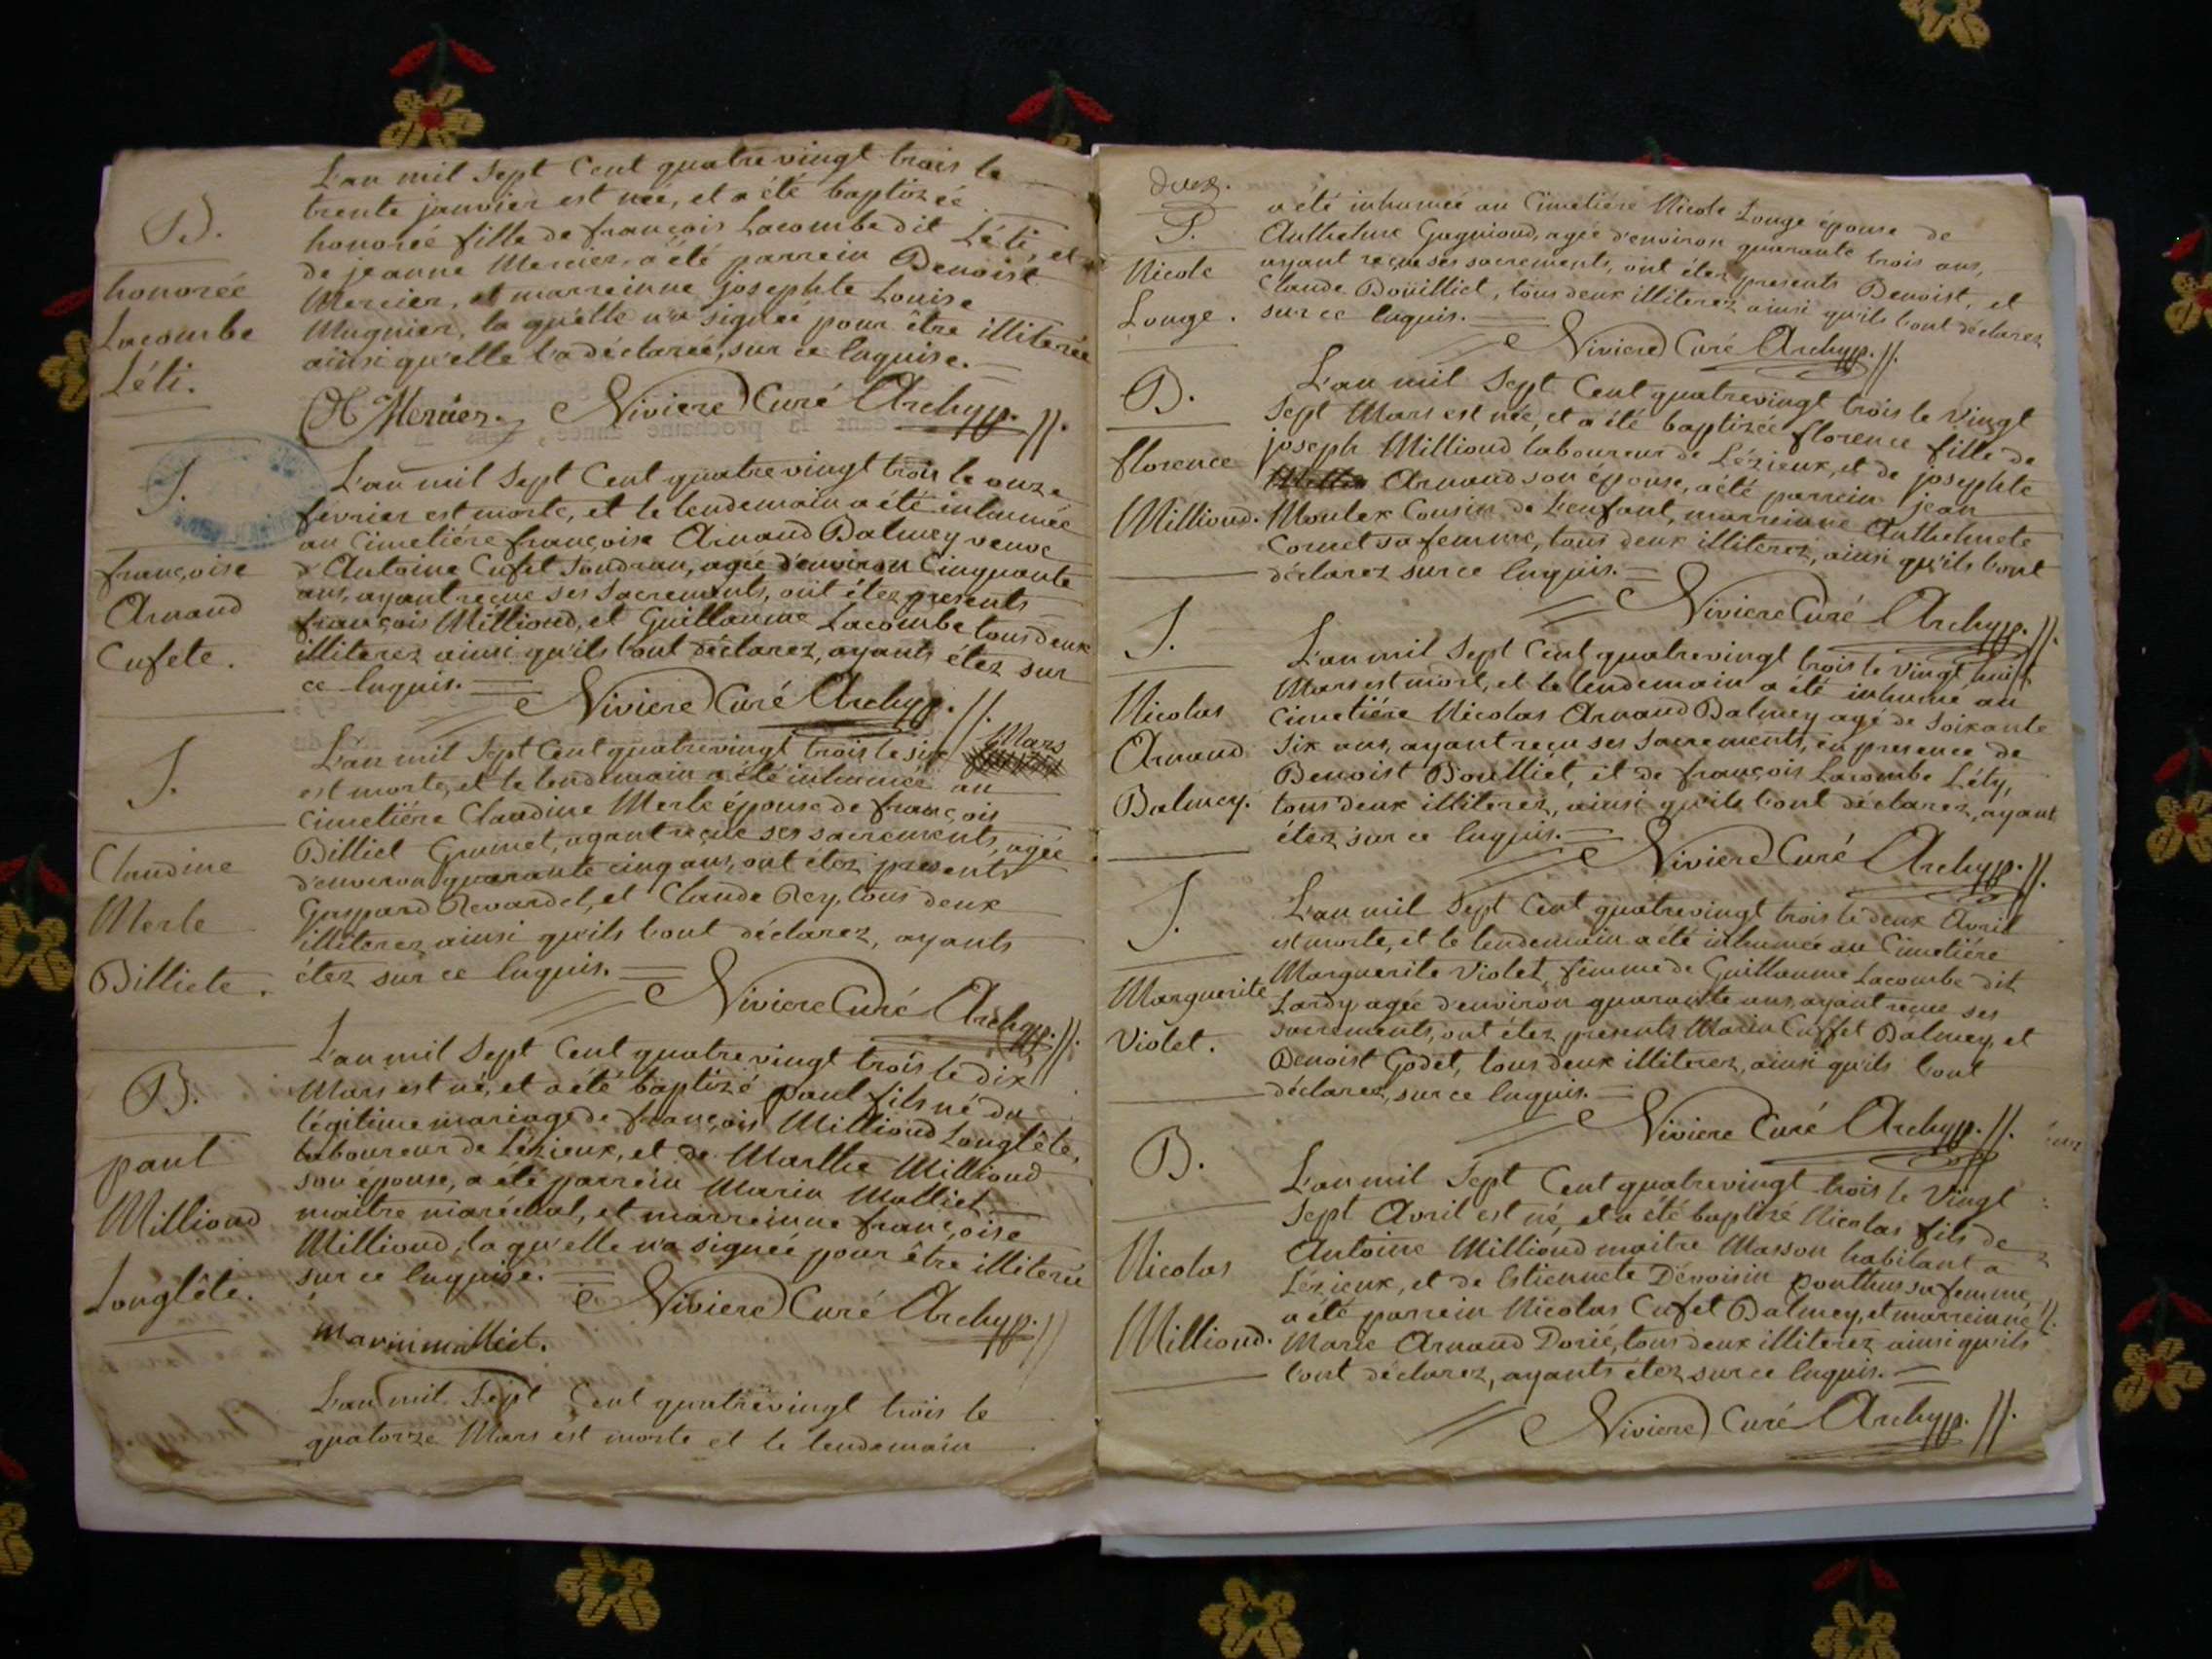 B.
honorée
Lacombe
Léti.
L'an mil Sept Cent quatrevingt trois le
trente janvier est née, et a été baptizée
honorée fille de françois Lacombe dit Léti, et
de jeanne Mercier, a été parrein Benoist
Mercier, et marreinne josephte Louise
Mugnier, la qu'elle n'a signée pour être illiterée
ainsi qu'elle l'a déclarée, sur ce Enquise.
Mercier. Niviere Curé Archyp.
S.
françoise
Arnaud
Cufete.
L'an mil Sept Cent quatrevingt trois le onze
fevrier est morte, et le lendemain a été inhumée
au Cimetiére françoise Arnaud Balmey veuve
d'Antoine Cufet Sondran, agée d'environ Cinquante
ans, ayant reçue ses Sacrements, ont étez presents
françois Milliond, et Guillaume Lacombe tous deux
illiterez ainsi qu'ils l'ont déclarez, ayants étez sur
ce Enquis. Niviere Curé Archyp.
S.
Claudine
Merle
Billiete.
L'an mil Sept Cent quatrevingt trois le six Mars
est morte, et le lendemain a été inhumée au
Cimetiére Claudine Merle épouse de françois
Billiet Grumet, ayant reçue ses sacrements, agée
d'environ quarante cinq ans, ont étez presents
Gaspard Revardel, et Claude Rey, tous deux
illiterez ainsi qu'ils l'ont déclarez, ayants
étez sur ce Enquis. Niviere Curé Archyp.
B.
paul
Milliond
Longlête.
L'an mil Sept Cent quatrevingt trois le dix
Mars est né, et a été baptizé paul fils né du
légitime mariage de françois Milliond Longlête,
laboureur de Lézieux, et de Marthe Milliond
son épouse, a été parrein Marin Molliet
maître maréchal, et marreinne françoise
Milliond, la qu'elle n'a signée pour être illiterée
sur ce Enquise. Niviere Curé Archyp.
marin molliet.
L'an mil Sept Cent quatrevingt trois le
quatorze Mars est morte et le lendemain
deux.
S.
Nicole
Longe.
a été inhumée au Cimetiére Nicole Longe épouse de
Anthelme Gagniond, agée d'environ quarante trois ans,
ayant reçue ses sacrements, ont étez presents Benoist, et
Claude Boüilliet, tous deux illiterez ainsi qu'ils l'ont déclarez
sur ce Enquis.
Niviere Curé Archyp.
B.
florence
Milliond.
L'an mil Sept Cent quatrevingt trois le Vingt
Sept Mars est née, et a été baptizée florence fille de
joseph Milliond laboureur de Lézieux, et de josephte
Arnaud son épouse, a été parrein jean
Moulex Cousin de l'enfant, marreinne Anthelmete
Cornet sa femme, tous deux illiterez, ainsi qu'ils l'ont
déclarez sur ce Enquis.
Niviere Curé Archyp.
S.
Nicolas
Arnaud
Balmey.
L'an mil Sept Cent quatrevingt trois le Vingt huit
Mars est mort, et le lendemain a été inhumé au
Cimetiére Nicolas Arnaud Balmey agé de Soixante
Six ans, ayant reçu ses Sacrements, en presence de
Benoist Bouilliet, et de françois Lacombe Léty,
tous deux illiterez, ainsi qu'ils l'ont déclarez, ayant
étez sur ce Enquis.
Niviere Curé Archyp.
S.
Marguerite
Violet.
L'an mil Sept Cent quatrevingt trois le deux Avril
est morte, et le lendemain a été inhumée au Cimetiére
Marguerite Violet, femme de Guillaume Lacombe dit
Lardy agée d'environ quarante ans, ayant reçue ses
sacrements, ont étez presents Marin Cuffet Balmey, et
Benoist Godet, tous deux illiterez, ainsi qu'ils l'ont
déclarez, sur ce Enquis.
Niviere Curé Archyp.
B.
Nicolas
Milliond.
L'an mil Sept Cent quatrevingt trois le Vingt
Sept Avril est né, et a été baptizé Nicolas fils de
Antoine Milliond maitre Masson habitant a
Lézieux, et de Estiennete Démoisin ponthus sa femme
a été parrein Nicolas Cufet Balmey, et marreinne
Marie Arnaud Dorié, tous deux illiterez ainsi qu'ils
l'ont déclarez, ayants étez sur ce Enquis.
Niviere Curé Archyp.